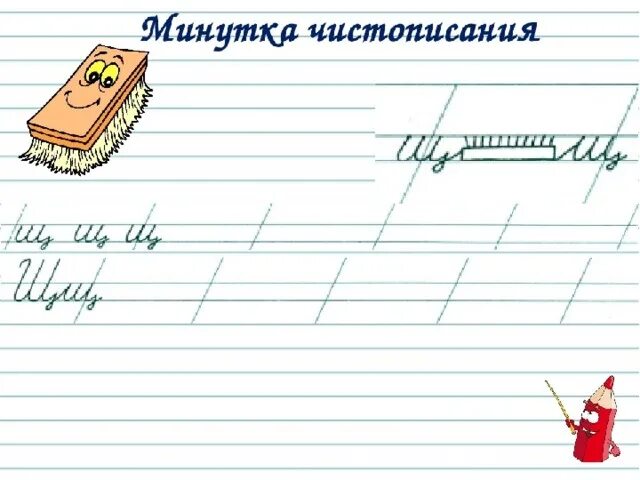 Минутка чистописания
щ щ
щ щ щ
Щщ